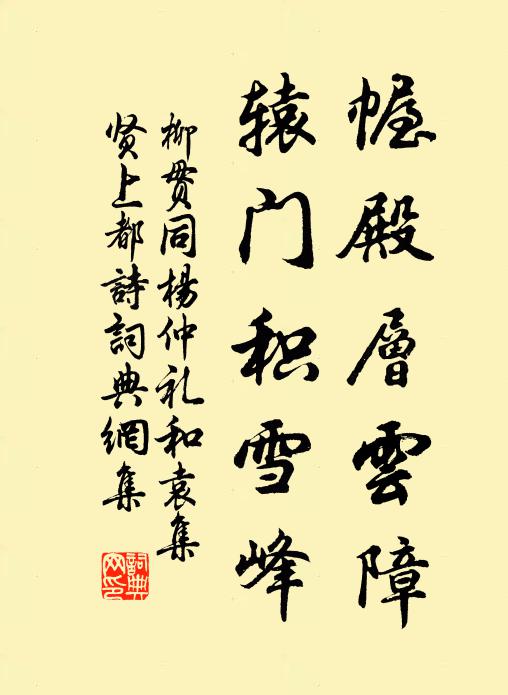 幄殿層雲障
辕门积雪峰
柳贯同楊仲礼和袁集
贤上都詩詞典網集
詞典
网印